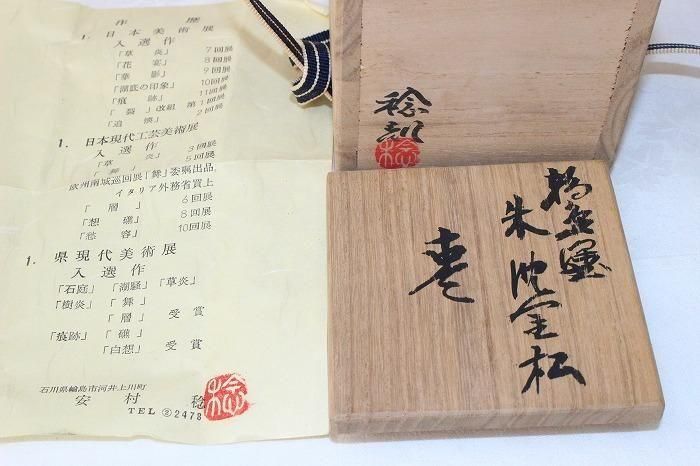 作歴
1. 日本美術展
入選作
「草炎」 7回展
「花宴」 8回展
「華影」 9回展
「湖底の印象」 10回展
「痕跡」 11回展
「裂」改組 第1回展
「追懐」 2回展
1. 日本現代工芸美術展
入選作
「草炎」 3回展
「舞」 5回展
欧州南域巡回展「舞」委嘱出品
イタリア外務省買上
「層」 6回展
「想礁」 8回展
「愁容」 10回展
1. 県現代美術展
入選作
「石庭」「潮騒」「草炎」
「樹炎」「舞」
「層」受賞
「痕跡」「礁」
「白想」受賞
石川県輪島市河井上川町
安村稔
TEL②2478
朱沈金松
棗